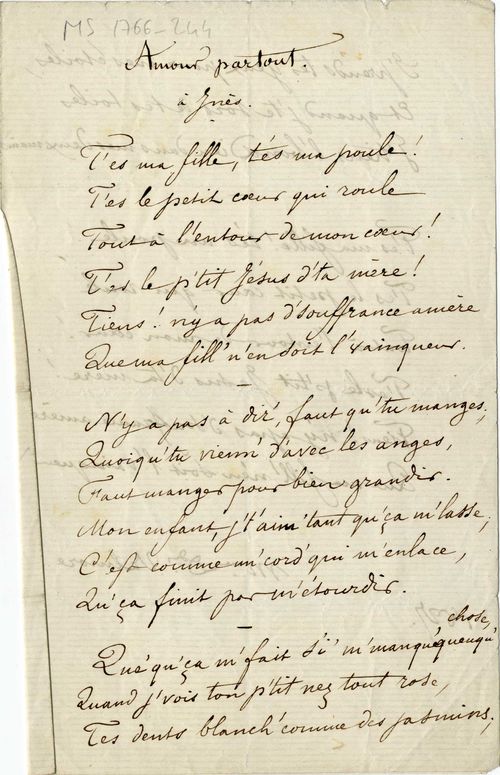 MS 1766-244
Amour partout.
à Inès.
T'es ma fille, t'és ma poule !
T'es le petit cœur qui roule
Tout à l'entour de mon cœur !
T'es le p'tit Jésus d'ta mère !
Tiens ! n'y a pas d'souffrance amère
Que ma fill' n'en soit l'vainqueur.
N'y a pas à dir', faut qu'tu manges,
Quoiqu'tu vienn' d'avec les anges,
Faut manger pour bien grandir.
Mon enfant, j't'aim' tant qu'ça m'lasse,
C'est comme un' cord' qui m'enlace,
Qu'ça finit par m'étourdir.
Qué' qu'ça m'fait si' m'manqu' queuqu' chose,
Quand j'vois ton p'tit nez tout rose,
Tes dents blanch' comme des jasmins,